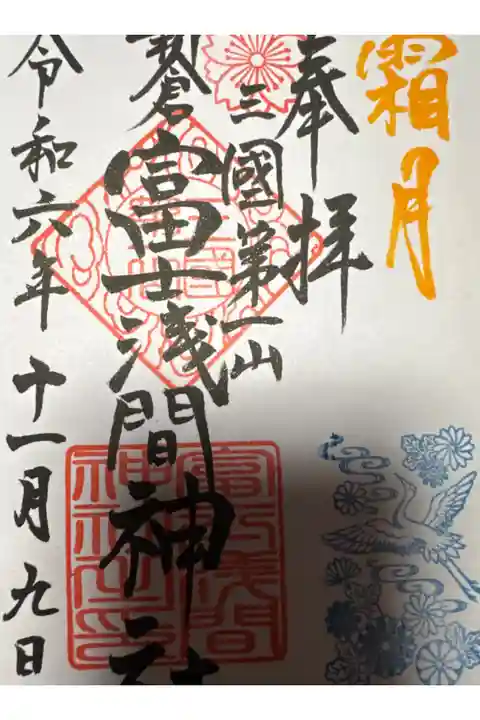 霜月
奉拝
三國第一山
新倉富士浅間神社
令和六年十一月九日
富士浅間
神社之印